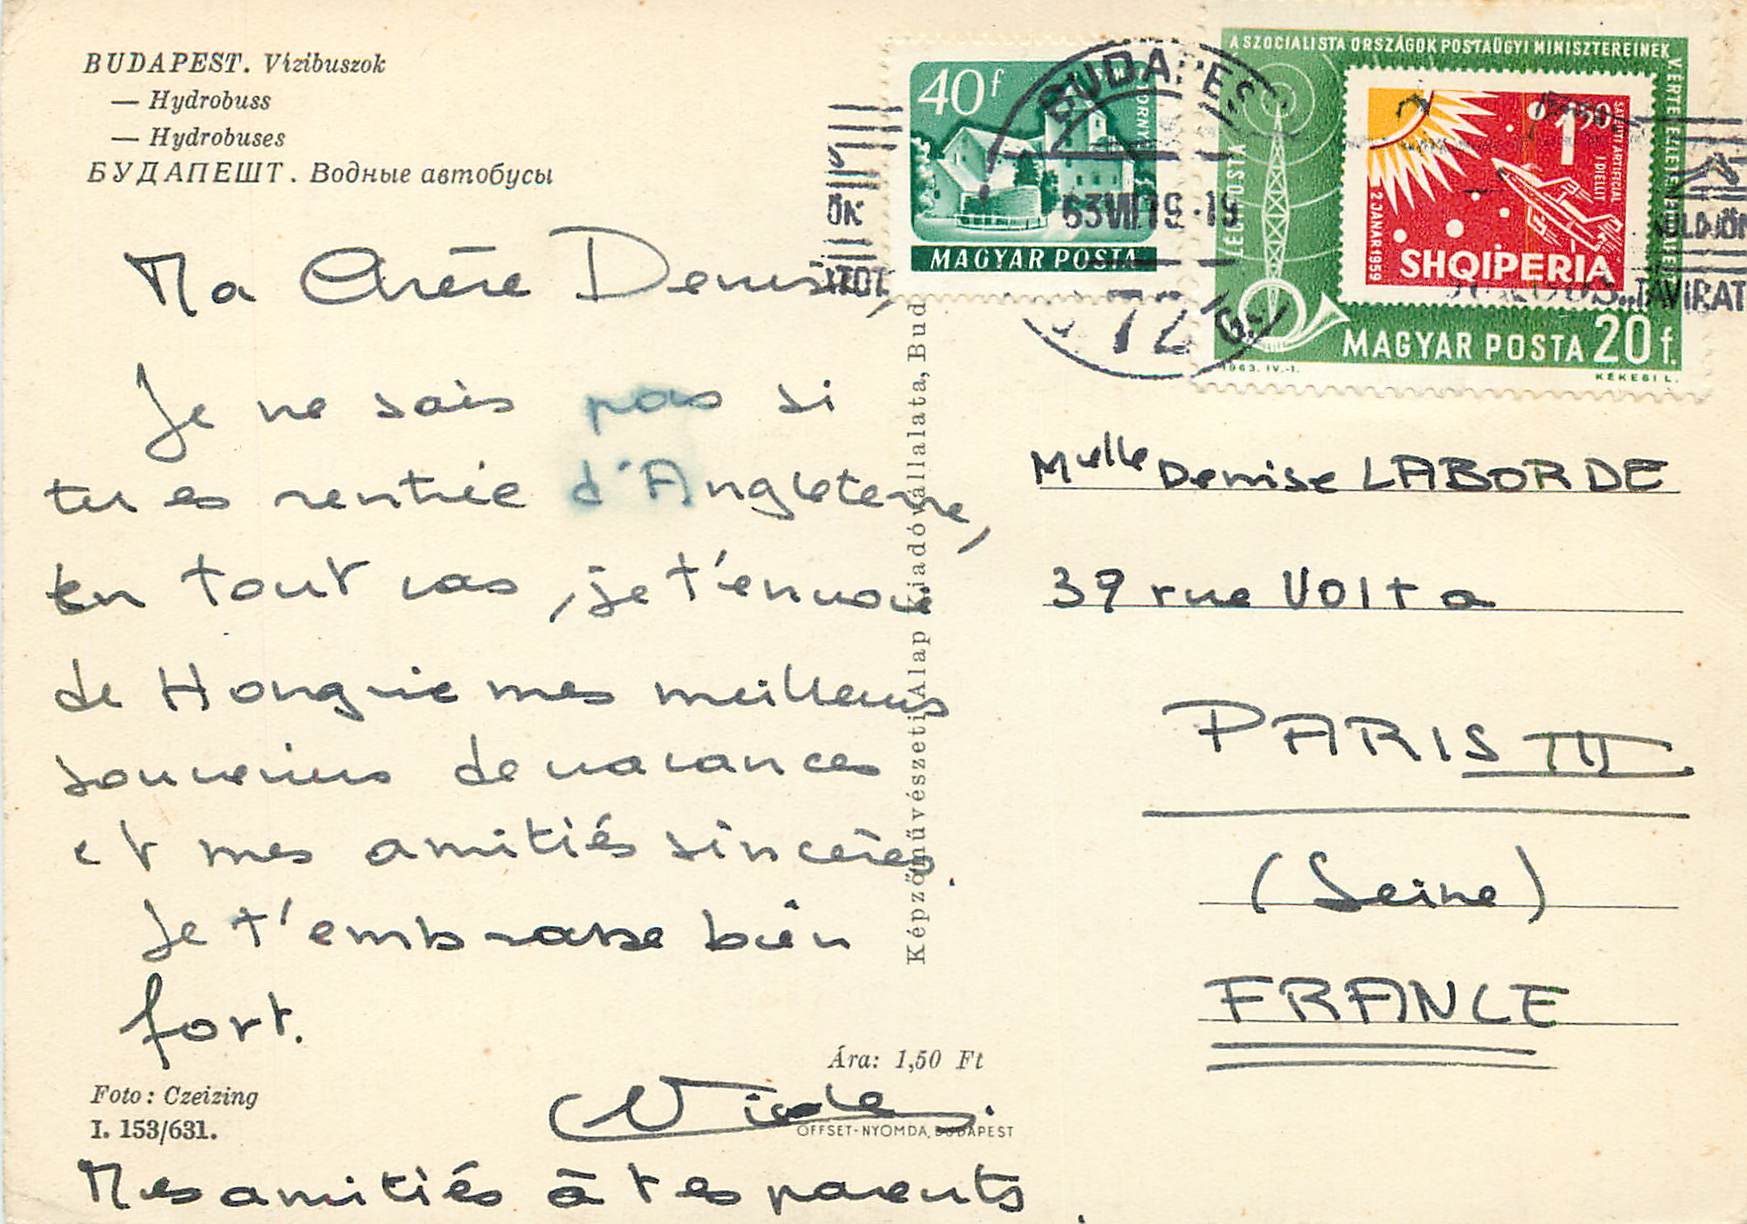 BUDAPEST. Vízibuszok
— Hydrobuss
— Hydrobuses
БУДАПЕШТ. Водные автобусы
Ma Chère Denise,
Je ne sais pas si
tu es rentrée d'Angleterre,
En tout cas, je t'envoie
de Hongrie mes meilleurs
souvenirs de vacances
et mes amitiés sincères.
Je t'embrasse bien
fort.
Nicole.
Mes amitiés à tes parents.
Foto: Czeizing
I. 153/631.
Ára: 1,50 Ft
OFFSET-NYOMDA, BUDAPEST
Képzőművészeti Alap Kiadóvállalata, Bud
40f
MAGYAR POSTA
BUDAPEST
63 VII 19 -19
72
A SZOCIALISTA ORSZÁGOK POSTAÜGYI MINISZTEREINEK
ÉRTEKEZLETE
LÉGIPOSTA
1 50
SATELITI ARTIFICIAL
I DIELLIT
2 JANAR 1959
SHQIPERIA
MAGYAR POSTA 20 f.
1963. IV.-1.
KÉKESI L.
KÜLDJÖN
TÁVIRAT
Mlle Denise LABORDE
39 rue VOLTA
PARIS III
(Seine)
FRANCE